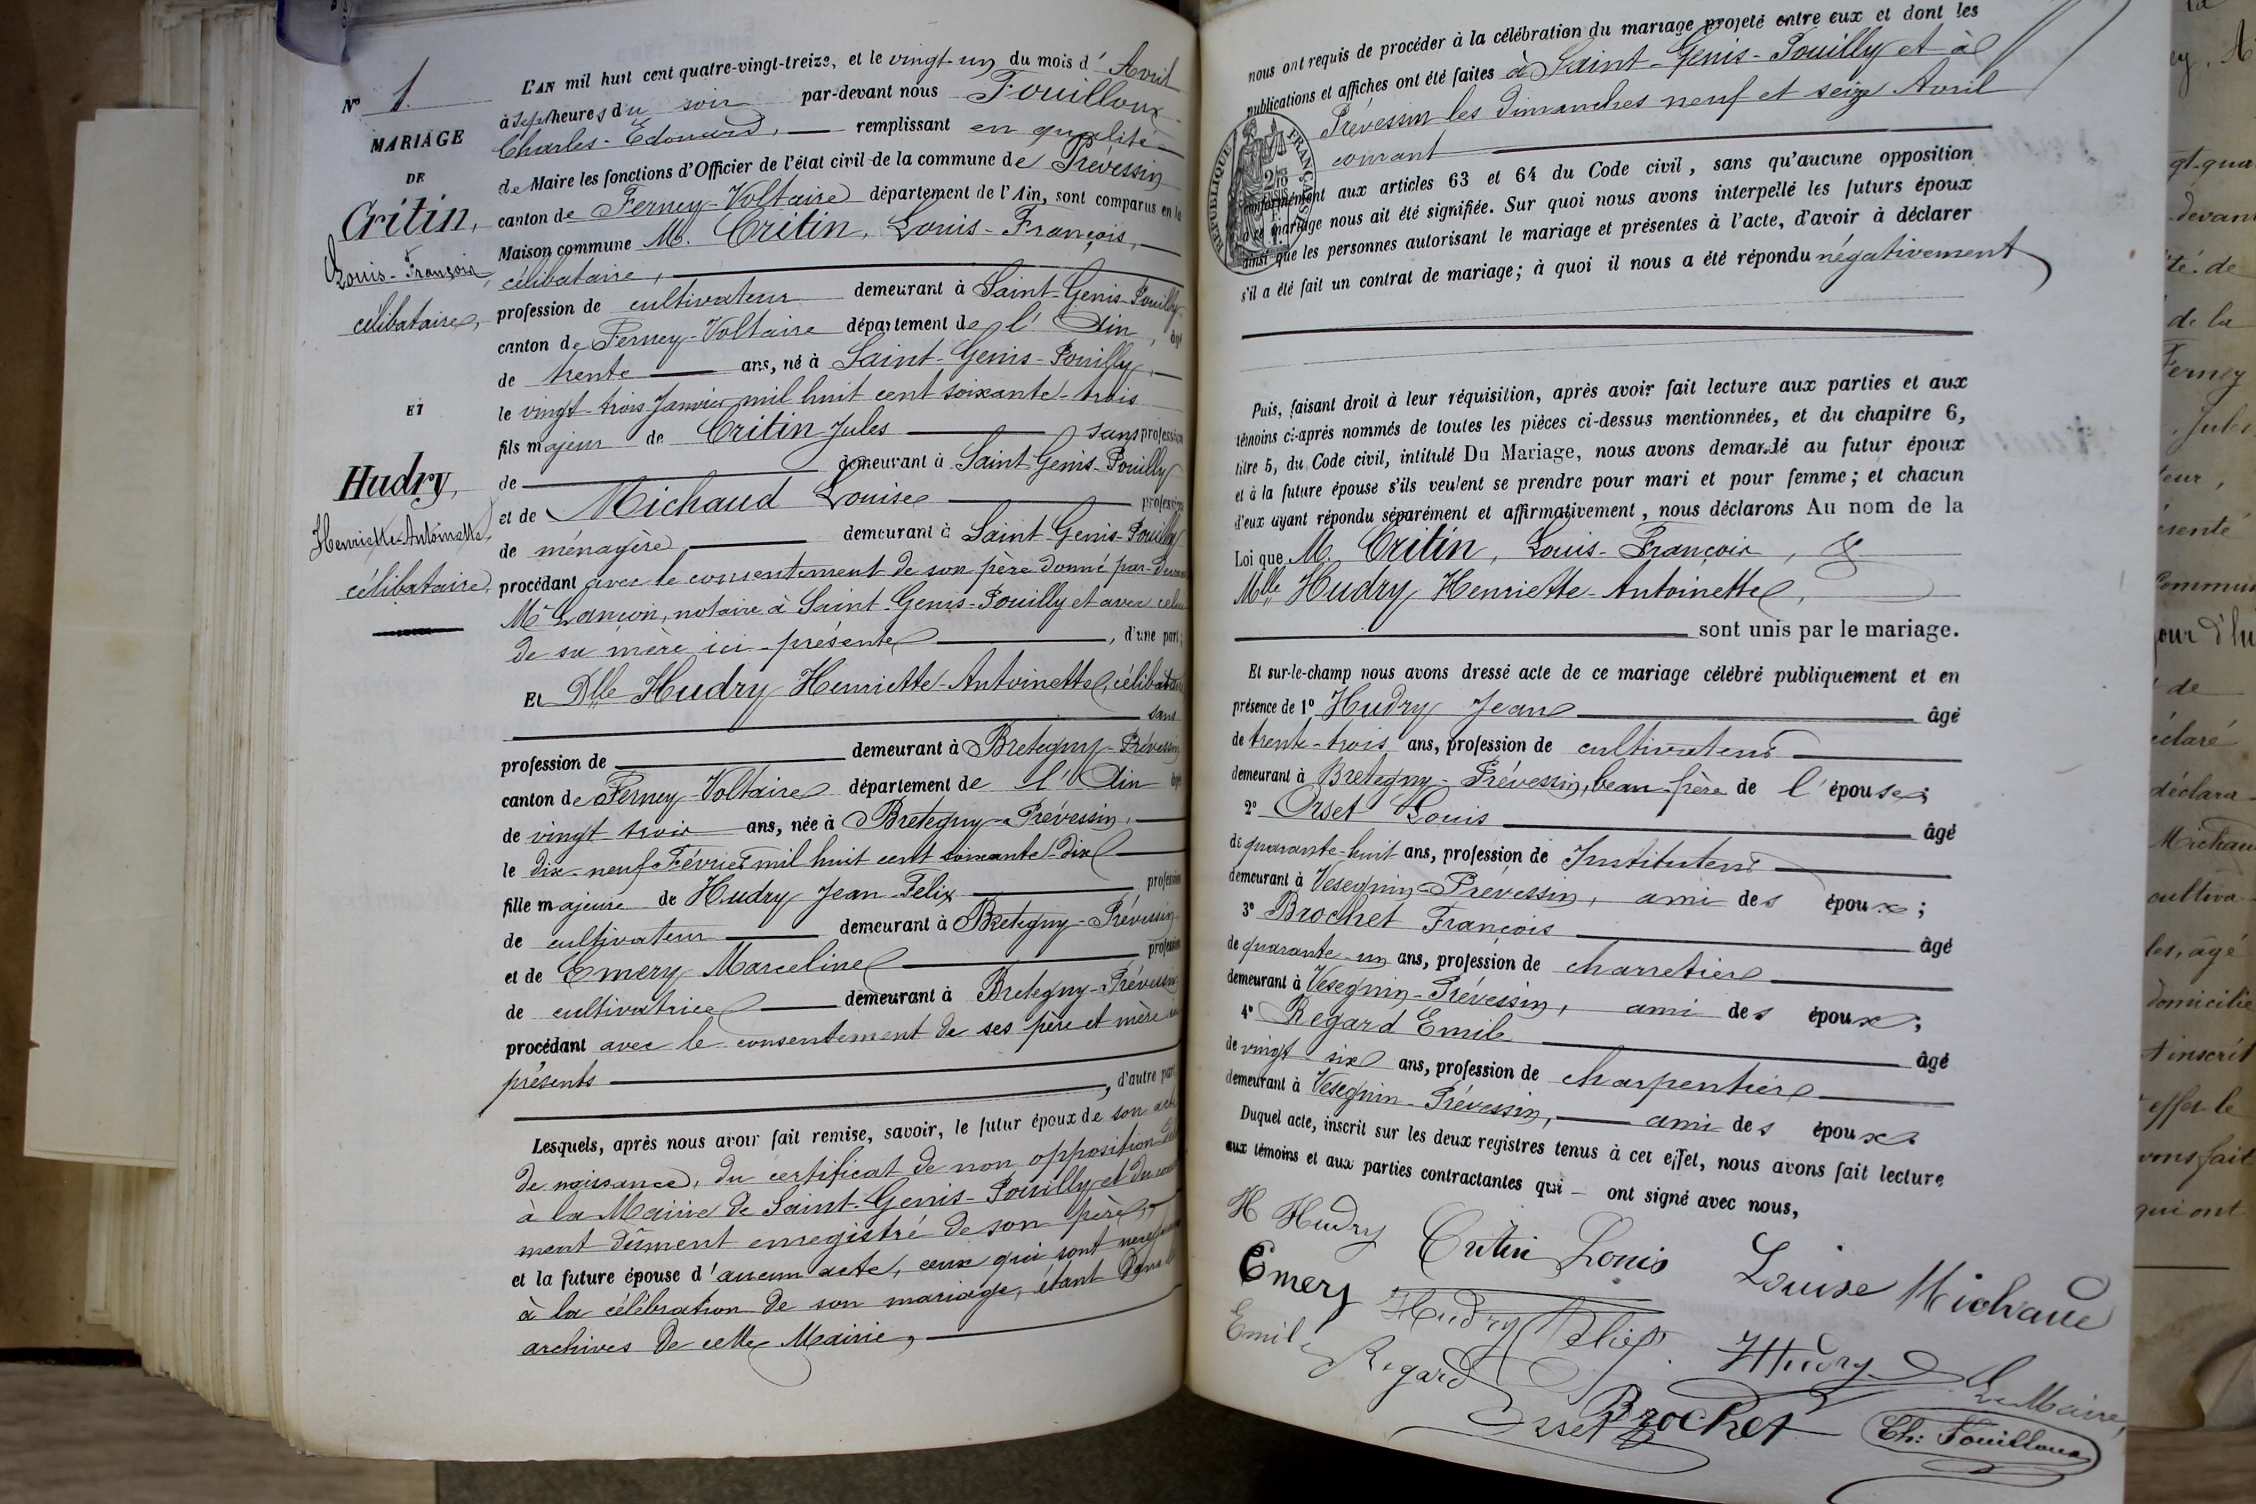 N° 1.
MARIAGE
DE
Critin,
Louis-François,
célibataire,
ET
Hudry,
Henriette-Antoinette,
célibataire,
L'AN mil huit cent quatre-vingt-treize, et le vingt-un du mois d'Avril
à sept heures du soir par-devant nous Fouilloux
Charles-Edouard, remplissant en qualité
de Maire les fonctions d'Officier de l'état civil de la commune de Prévessin
canton de Ferney-Voltaire département de l'Ain, sont comparus en la
Maison commune M. Critin, Louis-François,
célibataire,
profession de cultivateur demeurant à Saint-Genis-Pouilly
canton de Ferney-Voltaire département de l'Ain, âgé
de trente ans, né à Saint-Genis-Pouilly,
le vingt-trois Janvier mil huit cent soixante-trois
fils majeur de Critin Jules sans profession
de demeurant à Saint-Genis-Pouilly
et de Michaud Louise profession
de ménagère demeurant à Saint-Genis-Pouilly
procédant avec le consentement de son père donné par-devant
Me Lançon, notaire à Saint-Genis-Pouilly et avec celui
de sa mère ici-présente, d'une part;
Et Dlle Hudry Henriette-Antoinette, célibataire
sans
profession de demeurant à Bretegny-Prévessin
canton de Ferney-Voltaire département de l'Ain âgée
de vingt-trois ans, née à Bretegny-Prévessin,
le dix-neuf Février mil huit cent soixante-dix
fille majeure de Hudry Jean-Félix profession
de cultivateur demeurant à Bretegny-Prévessin
et de Emery Marceline profession
de cultivatrice demeurant à Bretegny-Prévessin
procédant avec le consentement de ses père et mère ici
présents
, d'autre part
Lesquels, après nous avoir fait remise, savoir, le futur époux de son acte
de naissance, du certificat de non opposition
à la Mairie de Saint-Genis-Pouilly et du
ment dûment enregistré de son père,
et la future épouse d'aucun acte, ceux qui sont
à la célébration de son mariage, étant dans les
archives de cette Mairie,
nous ont requis de procéder à la célébration du mariage projeté entre eux et dont les
publications et affiches ont été faites à Saint-Genis-Pouilly et à
Prévessin les dimanches neuf et seize Avril
courant
conformément aux articles 63 et 64 du Code civil, sans qu'aucune opposition
à ce mariage nous ait été signifiée. Sur quoi nous avons interpellé les futurs époux
ainsi que les personnes autorisant le mariage et présentes à l'acte, d'avoir à déclarer
s'il a été fait un contrat de mariage; à quoi il nous a été répondu négativement
RÉPUBLIQUE FRANÇAISE
Puis, faisant droit à leur réquisition, après avoir fait lecture aux parties et aux
témoins ci-après nommés de toutes les pièces ci-dessus mentionnées, et du chapitre 6,
titre 5, du Code civil, intitulé Du Mariage, nous avons demandé au futur époux
et à la future épouse s'ils veulent se prendre pour mari et pour femme; et chacun
d'eux ayant répondu séparément et affirmativement, nous déclarons Au nom de la
Loi que M. Critin, Louis-François, &
Mlle Hudry Henriette-Antoinette,
sont unis par le mariage.
Et sur-le-champ nous avons dressé acte de ce mariage célébré publiquement et en
présence de 1° Hudry Jean âgé
de trente-trois ans, profession de cultivateur
demeurant à Bretegny-Prévessin, beau-frère de l'épouse;
2° Orset Louis âgé
de quarante-huit ans, profession de Instituteur
demeurant à Vesegnin-Prévessin, ami des époux;
3° Brochet François âgé
de quarante-un ans, profession de charretier
demeurant à Vesegnin-Prévessin, ami des époux;
4° Regard Emile âgé
de vingt-six ans, profession de charpentier
demeurant à Vesegnin-Prévessin, ami des époux.
Duquel acte, inscrit sur les deux registres tenus à cet effet, nous avons fait lecture
aux témoins et aux parties contractantes qui ont signé avec nous,
H Hudry Critin Louis Louise Michaud
Emery Hudry Félix Hudry
Emile Regard
Orset Brochet
Le Maire,
Ch: Fouilloux